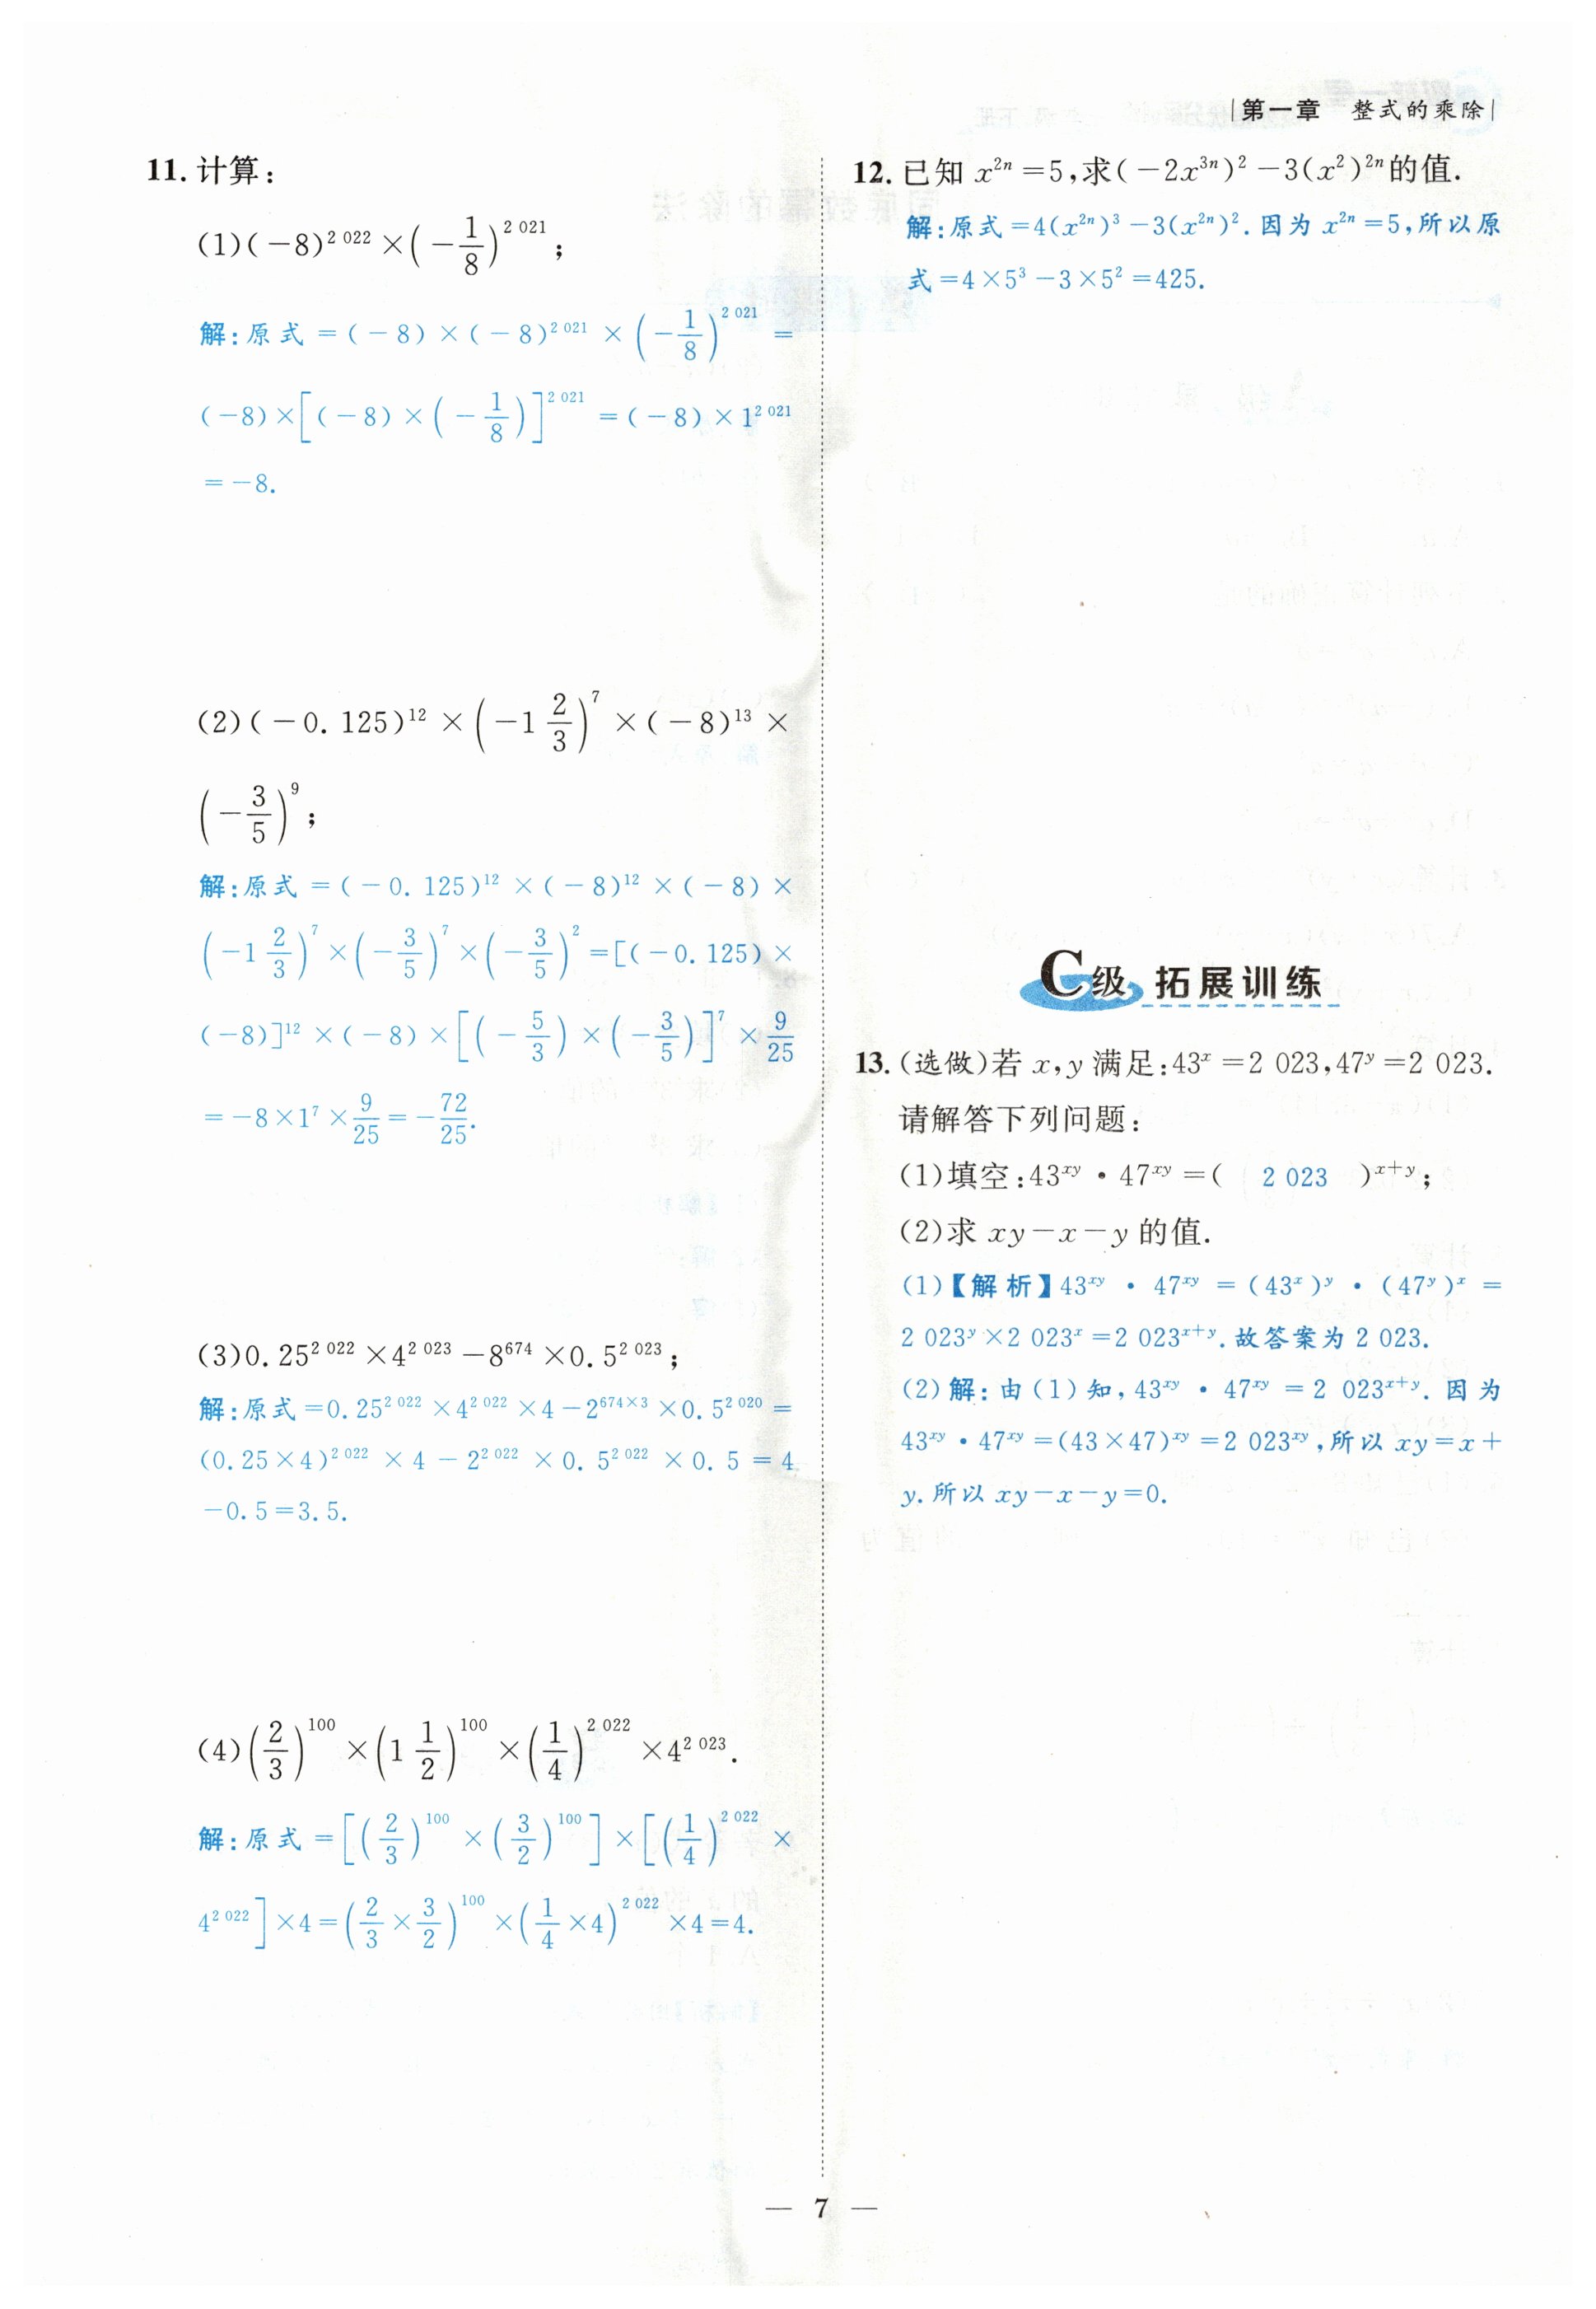 第一章 整式的乘除
11. 计算:
(1)(-8)^{2 022}×(-1/8)^{2 021};
解:原式=(-8)×(-8)^{2 021}×(-1/8)^{2 021}=
(-8)×[(-8)×(-1/8)]^{2 021}=(-8)×1^{2 021}
=-8.
(2)(-0.125)^{12}×(-1 2/3)^7×(-8)^{13}×
(-3/5)^9;
解:原式=(-0.125)^{12}×(-8)^{12}×(-8)×
(-1 2/3)^7×(-3/5)^7×(-3/5)^2=[(-0.125)×
(-8)]^{12}×(-8)×[(-5/3)×(-3/5)]^7×9/25
=-8×1^7×9/25=-72/25.
(3)0.25^{2 022}×4^{2 023}-8^{674}×0.5^{2 023};
解:原式=0.25^{2 022}×4^{2 022}×4-2^{674×3}×0.5^{2 020}=
(0.25×4)^{2 022}×4-2^{2 022}×0.5^{2 022}×0.5=4
-0.5=3.5.
(4)(2/3)^{100}×(1 1/2)^{100}×(1/4)^{2 022}×4^{2 023}.
解:原式=[(2/3)^{100}×(3/2)^{100}]×[(1/4)^{2 022}×
4^{2 022}]×4=(2/3×3/2)^{100}×(1/4×4)^{2 022}×4=4.
12. 已知 x^{2n}=5,求(-2x^{3n})^2-3(x^2)^{2n}的值.
解:原式=4(x^{2n})^3-3(x^{2n})^2.因为 x^{2n}=5,所以原
式=4×5^3-3×5^2=425.
C级 拓展训练
13. (选做)若 x,y 满足:43^x=2 023,47^y=2 023.
请解答下列问题:
(1)填空:43^{xy}·47^{xy}=( 2 023 )^{x+y};
(2)求 xy-x-y 的值.
(1)【解析】43^{xy}·47^{xy}=(43^x)^y·(47^y)^x=
2 023^y×2 023^x=2 023^{x+y}.故答案为 2 023.
(2)解:由(1)知,43^{xy}·47^{xy}=2 023^{x+y}.因为
43^{xy}·47^{xy}=(43×47)^{xy}=2 023^{xy},所以 xy=x+
y.所以 xy-x-y=0.
— 7 —